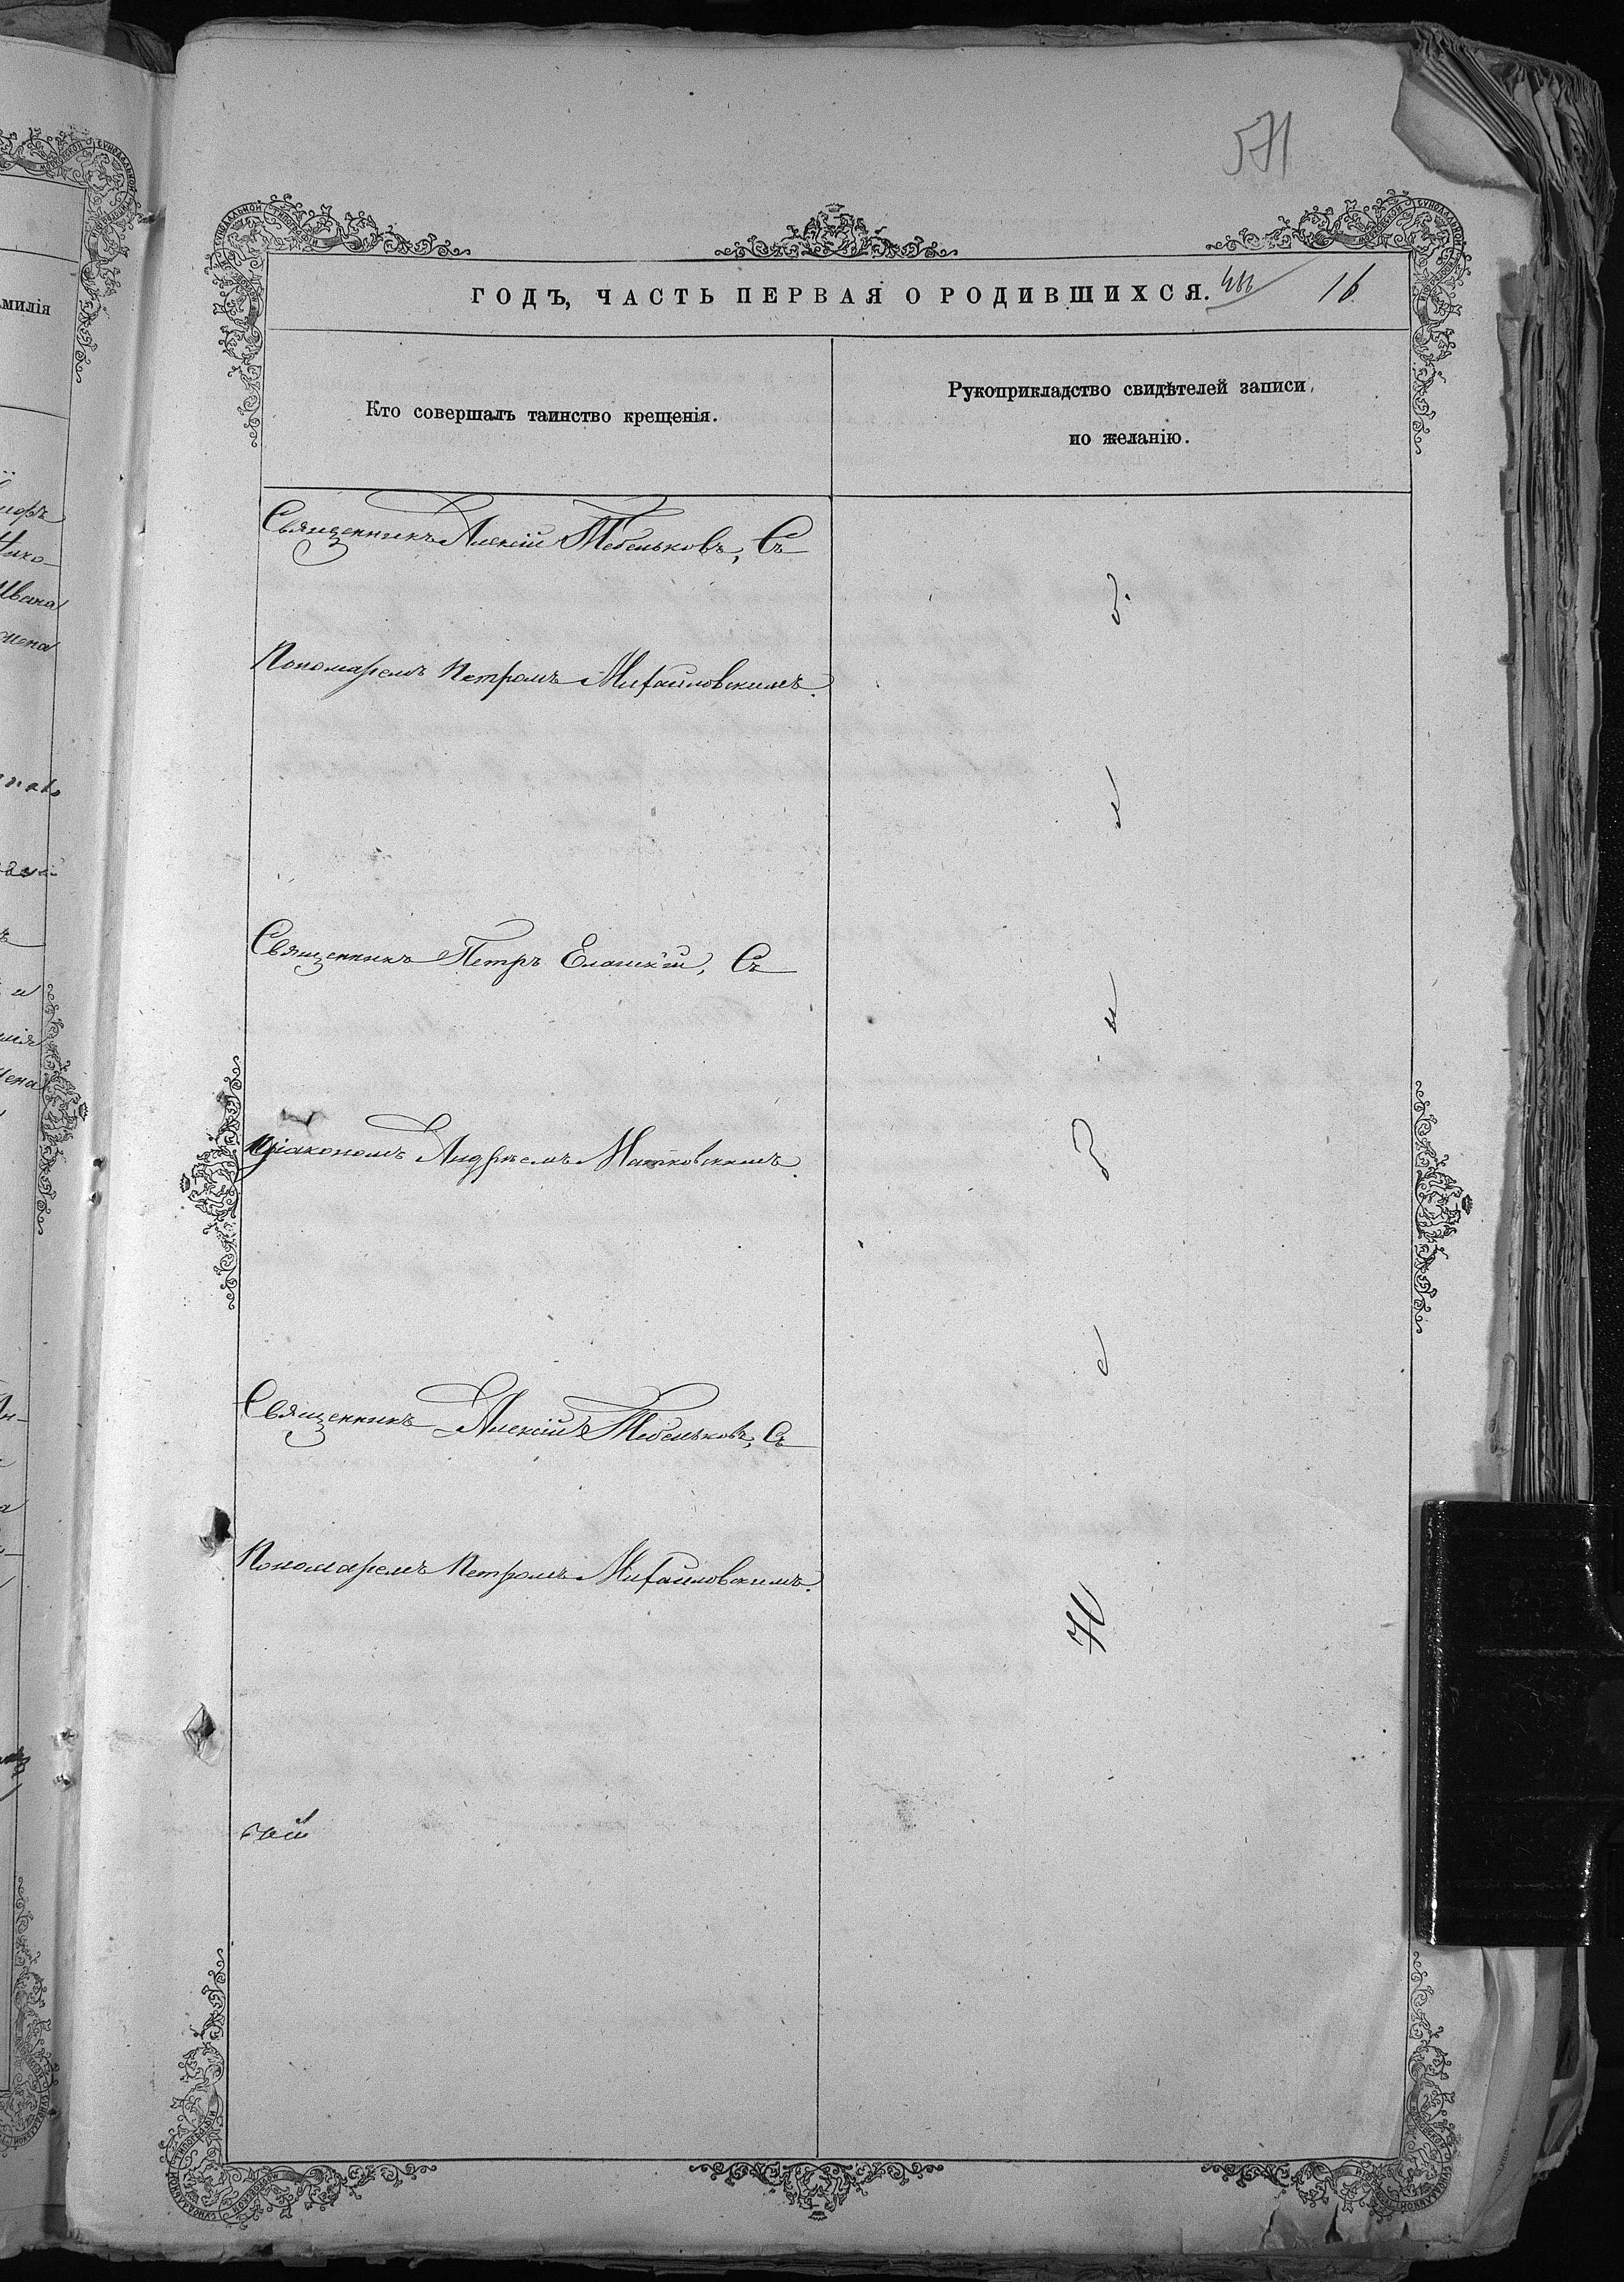 571
ГОДЪ, ЧАСТЬ ПЕРВАЯ О РОДИВШИХСЯ. 16
Кто совершалъ таинство крещенія.
Рукоприкладство свидѣтелей записи
по желанію.
Священникъ Алексій Тебеньковъ, Съ
Пономаремъ Петромъ Михайловскимъ.
Священникъ Петръ Елошкій, Съ
Діакономъ Андреемъ Матковскимъ.
Священникъ Алексій Тебеньковъ, Съ
Пономаремъ Петромъ Михайловскимъ.
милія
Ивана